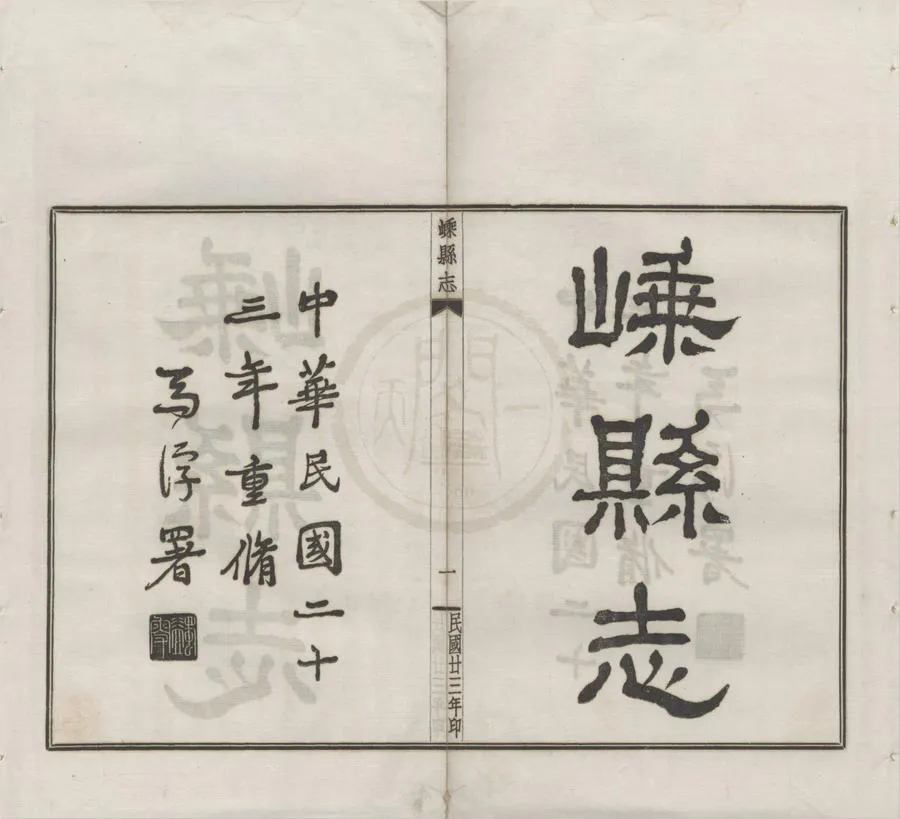 嵊縣志
嵊縣志
一
民國廿三年印
中華民國二十
三年重脩
馬浮署